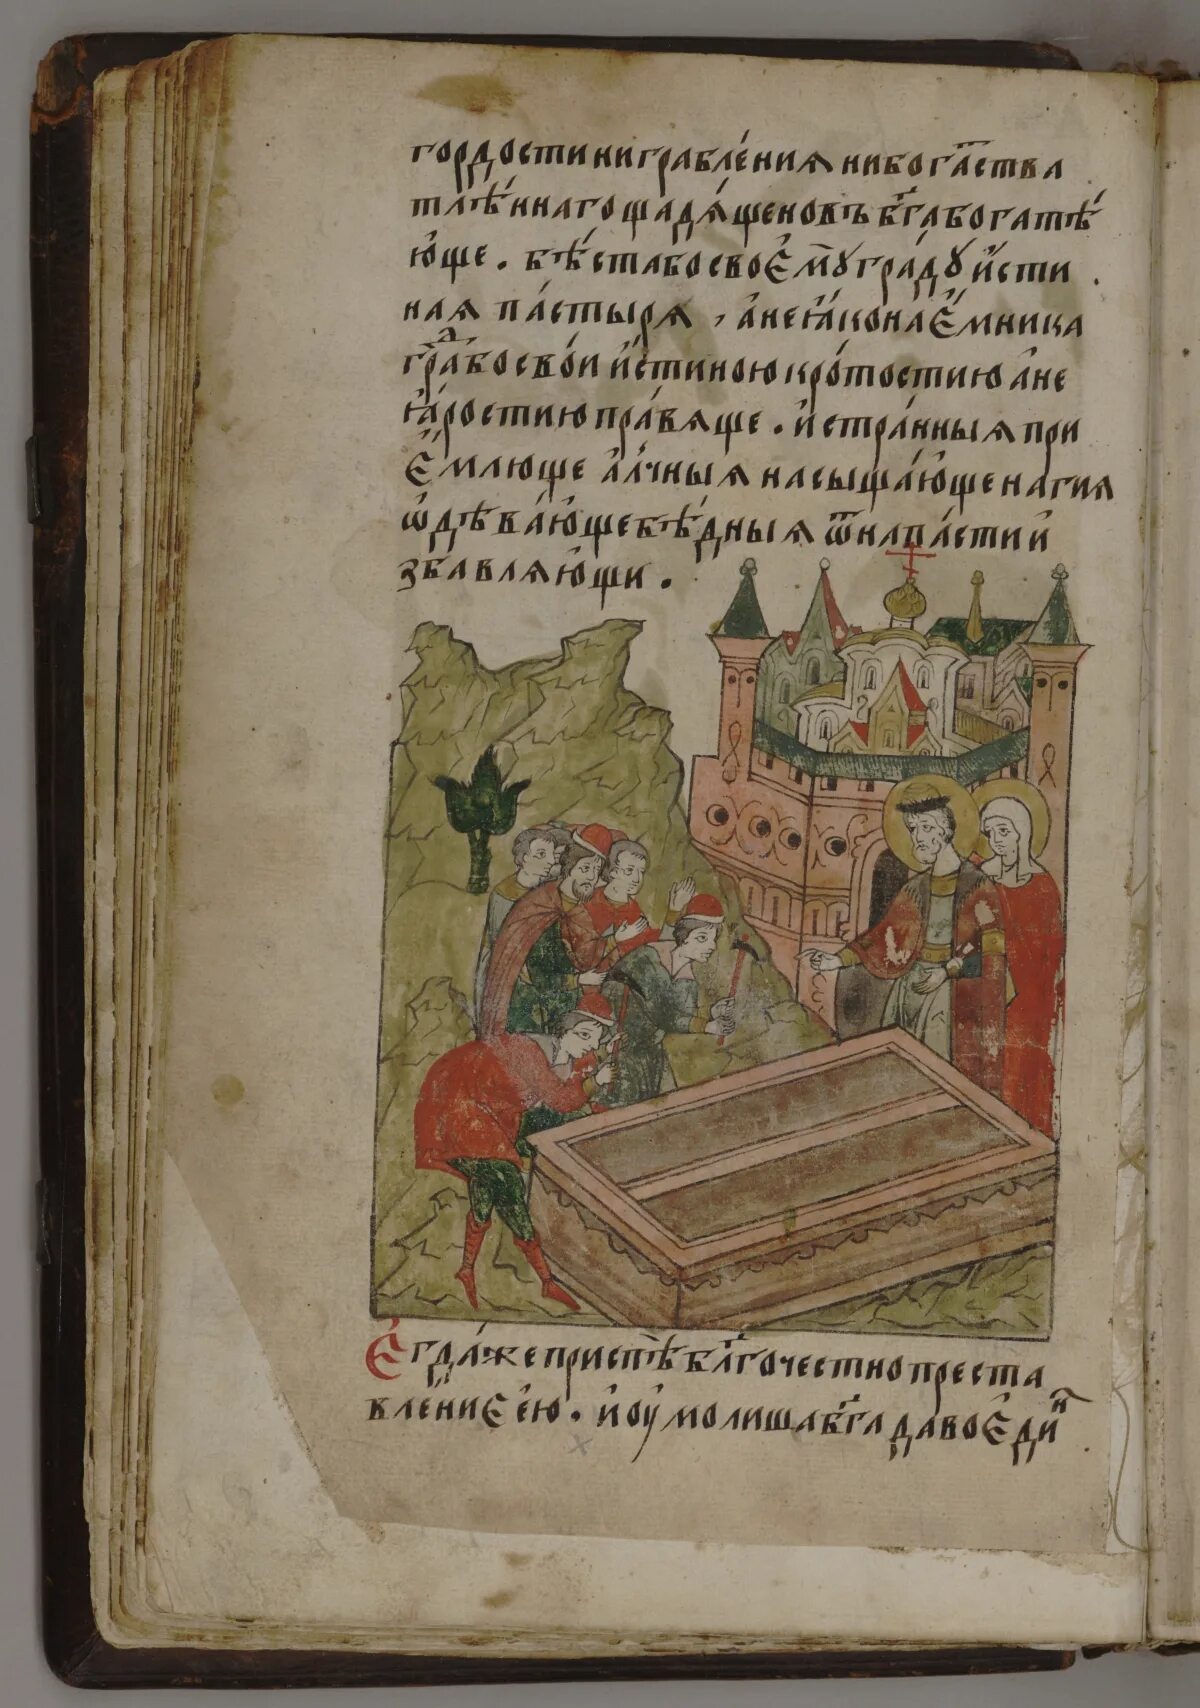 гордости ни грабле́нїѧ ни богⷮаства
тлѣ́ннаго щадѧ́ще но въ бг҃а богатѣ́
ю҆ще . бѣ́ста бо своє́мꙋ гра́дꙋ и҆́сти
наѧ па́стырѧ , а҆ не ꙗ҆́ко нає́мника
граⷣ бо сво́и и҆́стиною и кро́тостию а҆ не
ꙗ҆́ростию пра́вѧще . и҆ стра́нныѧ при
є́млюще а҆́лчныѧ насыща́юще нагиѧ
ѡ҆дѣва́юще бѣ́дныѧ ѿ напа́сти и҆
збавлѧ́ющи .
Єгда́ же приспѣ̀ блг҃очестно преста
влє́ниє є҆ю̀ . и҆ оу҆молиша бг҃а да во є҆диⷩ